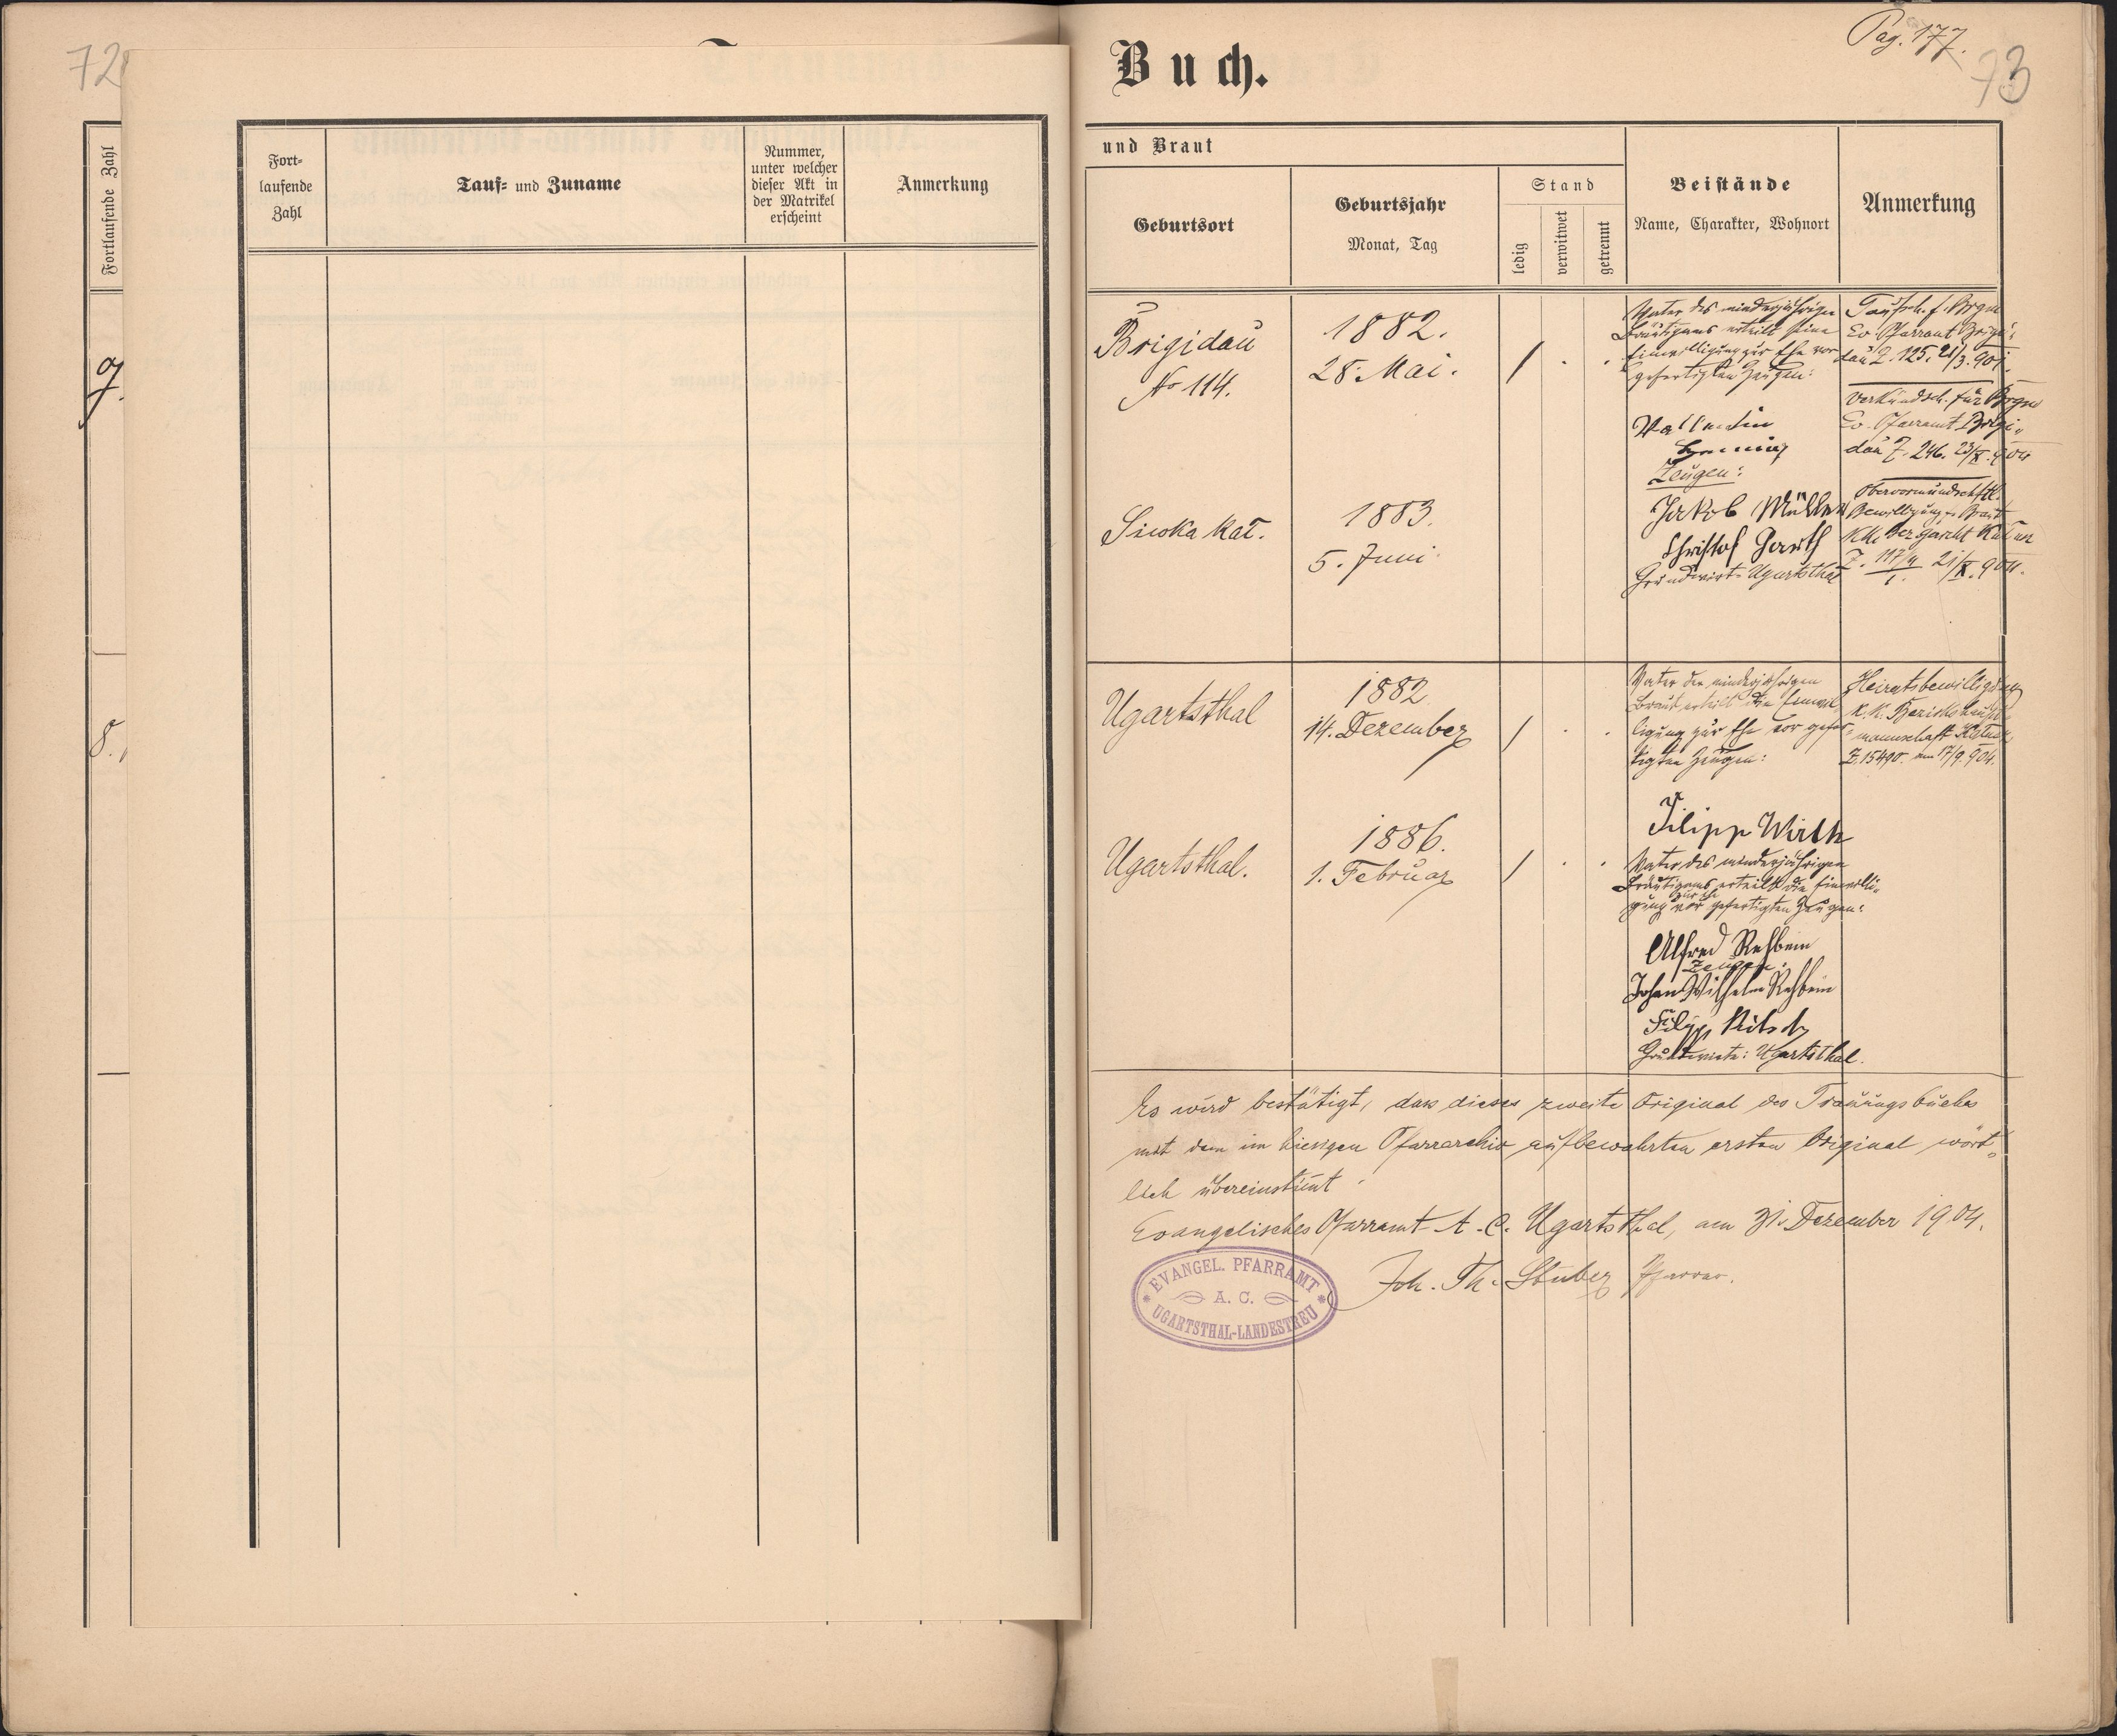 72
Fortlaufende Zahl
8.
Fort-
laufende
Zahl
Tauf- und Zuname
Nummer,
unter welcher
dieser Akt in
der Matrikel
erscheint
Anmerkung
Buch.
Pag. 177.
73
und Braut
Geburtsort
Geburtsjahr
Monat, Tag
Stand
ledig
verwitwet
getrennt
Beistände
Name, Charakter, Wohnort
Anmerkung
Brigidau
No 114.
1882.
28. Mai.
Vater des minderjährigen
Bräutigams erteilt seine
Einwilligung zur Ehe vor
gefertigten Zeugen:
Zeugen:
Jakob Müller
Christof
Grundwirt Ugartsthal
Taufsch. f. Brgm
Ev. Pfarramt Brigi-
dau Z. 125. 21/3. 901.
Verkündsch. für Brgm
Ev. Pfarramt Brigi-
dau Z. 246. 23/X. 904
Obervormundschftl.
Bewilligung
Z. 117/4 21/X. 904.
1.
Siwka kal.
1883.
5. Juni
Ugartsthal
1882
14. Dezember
Vater der minderjährigen
Braut erteilt die Einwil-
ligung zur Ehe vor gefer-
tigten Zeugen:
Filipp Wirth
Heiratsbewilligung
k. k. Bezirkshaupt-
mannschaft
Z. 15490. am 17/9. 904.
Ugartsthal.
1886.
1. Februar
Vater des minderjährigen
Bräutigams erteilt die Einwilli-
zur Ehe
gung vor gefertigten Zeugen:
Alfred Rehbein
Zeugen:
Johan Wilhelm Rehbein
Filipp
Grundwirte: Ugartsthal.
Es wird bestätigt, dass dieses zweite Original des Trauungsbuches
mit dem im hiesigen Pfarrarchiv aufbewahrten ersten Original wört-
lich übereinstimt.
Evangelisches Pfarramt A. C. Ugartsthal, am 31. Dezember 1904.
Joh. Th. Stuber Pfarrer.
EVANGEL. PFARRAMT
A. C.
UGARTSTHAL-LANDESTREU